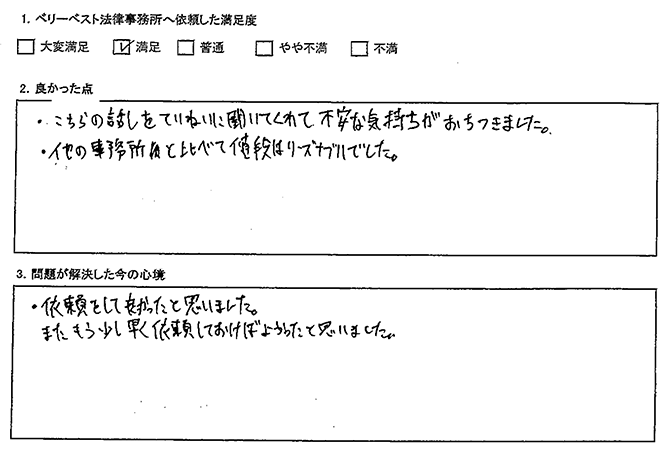 1. ベリーベスト法律事務所へ依頼した満足度
□ 大変満足 ☑ 満足 □ 普通 □ やや不満 □ 不満
2. 良かった点
・こちらの話しをていねいに聞いてくれて不安な気持ちがおちつきました。
・他の事務所と比べて値段はリーズナブルでした。
3. 問題が解決した今の心境
・依頼をして良かったと思いました。
またもう少し早く依頼しておけばよかったと思いました。